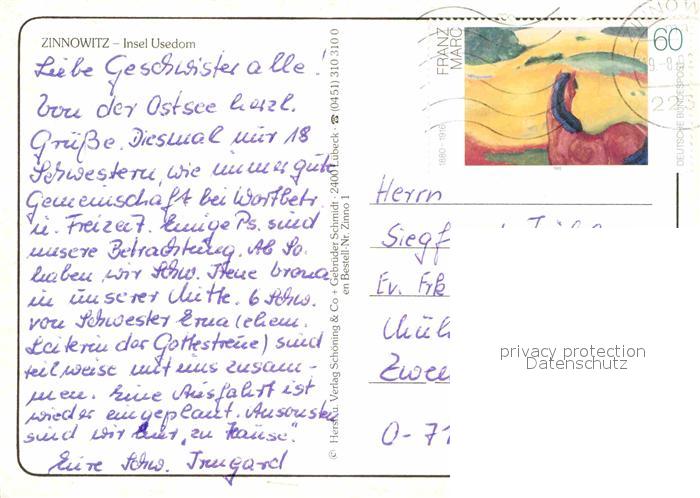 ZINNOWITZ – Insel Usedom
Liebe Geschwister alle!
Von der Ostsee herzl.
Grüße. Diesmal nur 18
Schwestern, wie immer gute
Gemeinschaft bei Wortbetr.
u. Freizeit. Einige Ps. sind
unsere Betrachtung. Ab So.
haben wir Schw. Irene
in unserer Mitte. 6 Schw.
von Schwester Erna (ehem.
Leiterin der Gottestreue) sind
teilweise mit uns zusam-
men. Eine Ausfahrt ist
wieder eingeplant. Ansonsten
sind wir hier „zu Hause“.
Eure Schw. Irmgard
© Herst. u. Verlag Schöning & Co + Gebrüder Schmidt · 2400 Lübeck · ☎ (0451) 310 310 0
en Bestell-Nr. Zinno 1
FRANZ
MARC
1880-1916
60
DEUTSCHE BUNDESPOST
Herrn
Siegf
Ev. Frk
Mühl
Zwen
O-71
privacy protection
Datenschutz